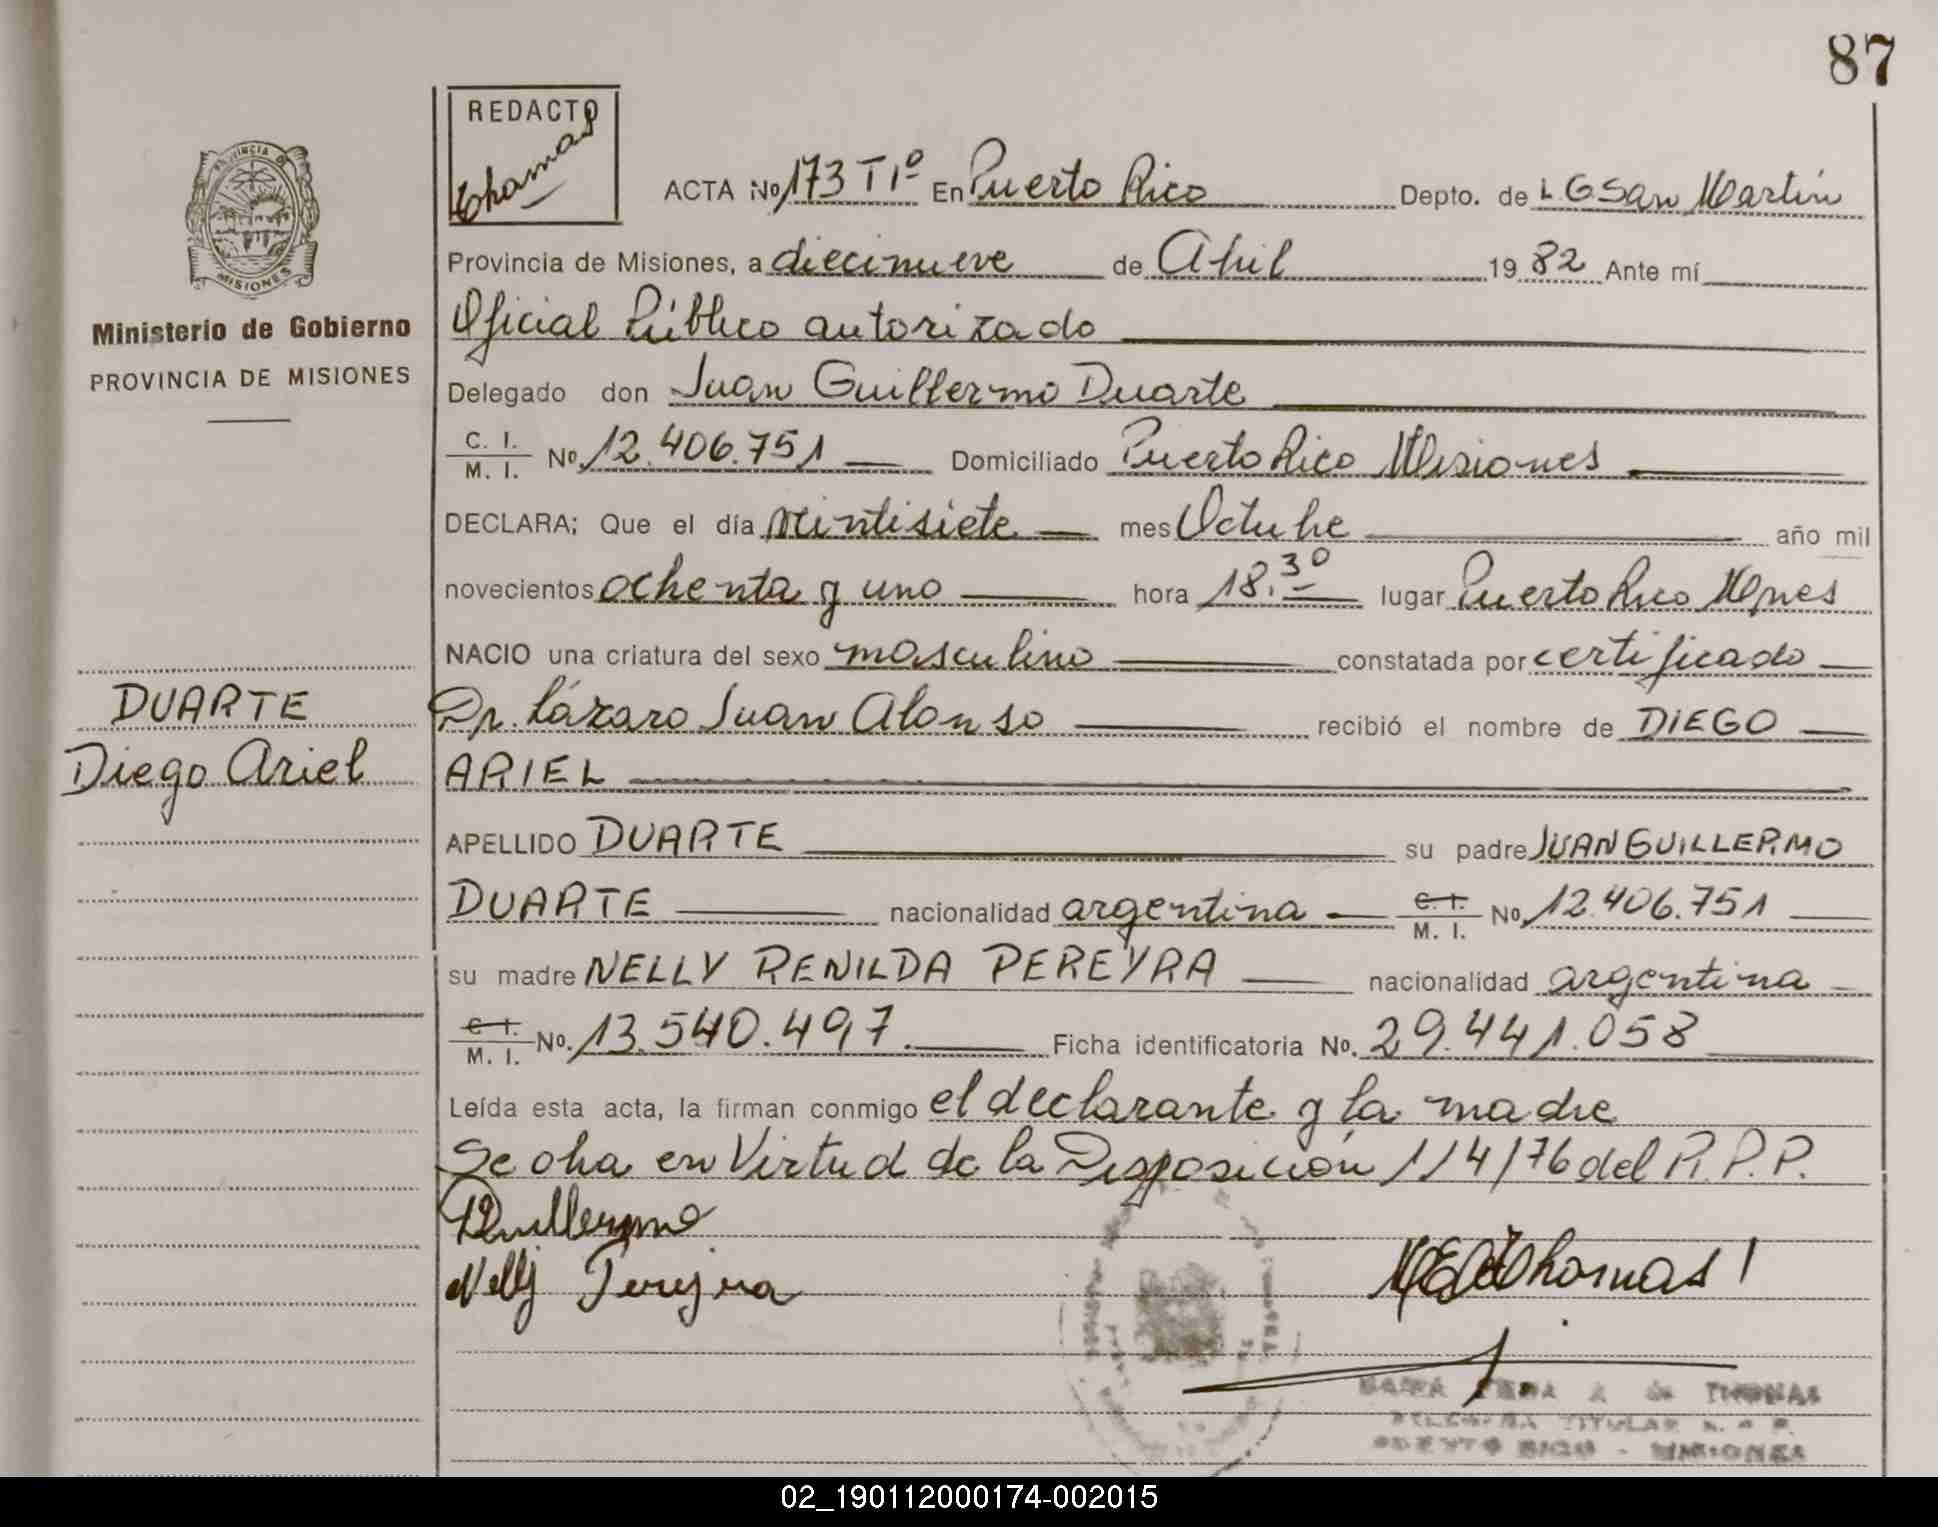 87
REDACTO
Thomas
PROVINCIA DE
MISIONES
Ministerio de Gobierno
PROVINCIA DE MISIONES
ACTA No 173 T1º En Puerto Rico Depto. de L G San Martín
Provincia de Misiones, a diecinueve de Abril 19 82 Ante mí
Oficial Público autorizado
Delegado don Juan Guillermo Duarte
C. I. M. I. No 12.406.751 Domiciliado Puerto Rico Misiones
DECLARA; Que el día veintisiete mes Octubre año mil
novecientos ochenta y uno hora 18.30 lugar Puerto Rico Mnes
NACIO una criatura del sexo masculino constatada por certificado
Dr. Lázaro Juan Alonso recibió el nombre de DIEGO
ARIEL
DUARTE
Diego Ariel
APELLIDO DUARTE su padre JUAN GUILLERMO
DUARTE nacionalidad argentina C. I. M. I. No 12.406.751
su madre NELLY RENILDA PEREYRA nacionalidad argentina
C. I. M. I. No. 13.540.497. Ficha identificatoria No. 29.441.058
Leída esta acta, la firman conmigo el declarante y la madre
Se obra en Virtud de la Disposición 114/76 del R.P.P.
Guillermo
Nelly Pereyra
Thomas
THOMAS
DELEGADA TITULAR R. P.
PUERTO RICO - MISIONES
02_190112000174-002015